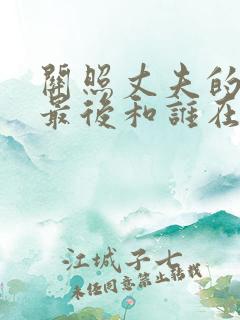 關照丈夫的
最後和誰在
江城子七
未经同意禁止转载